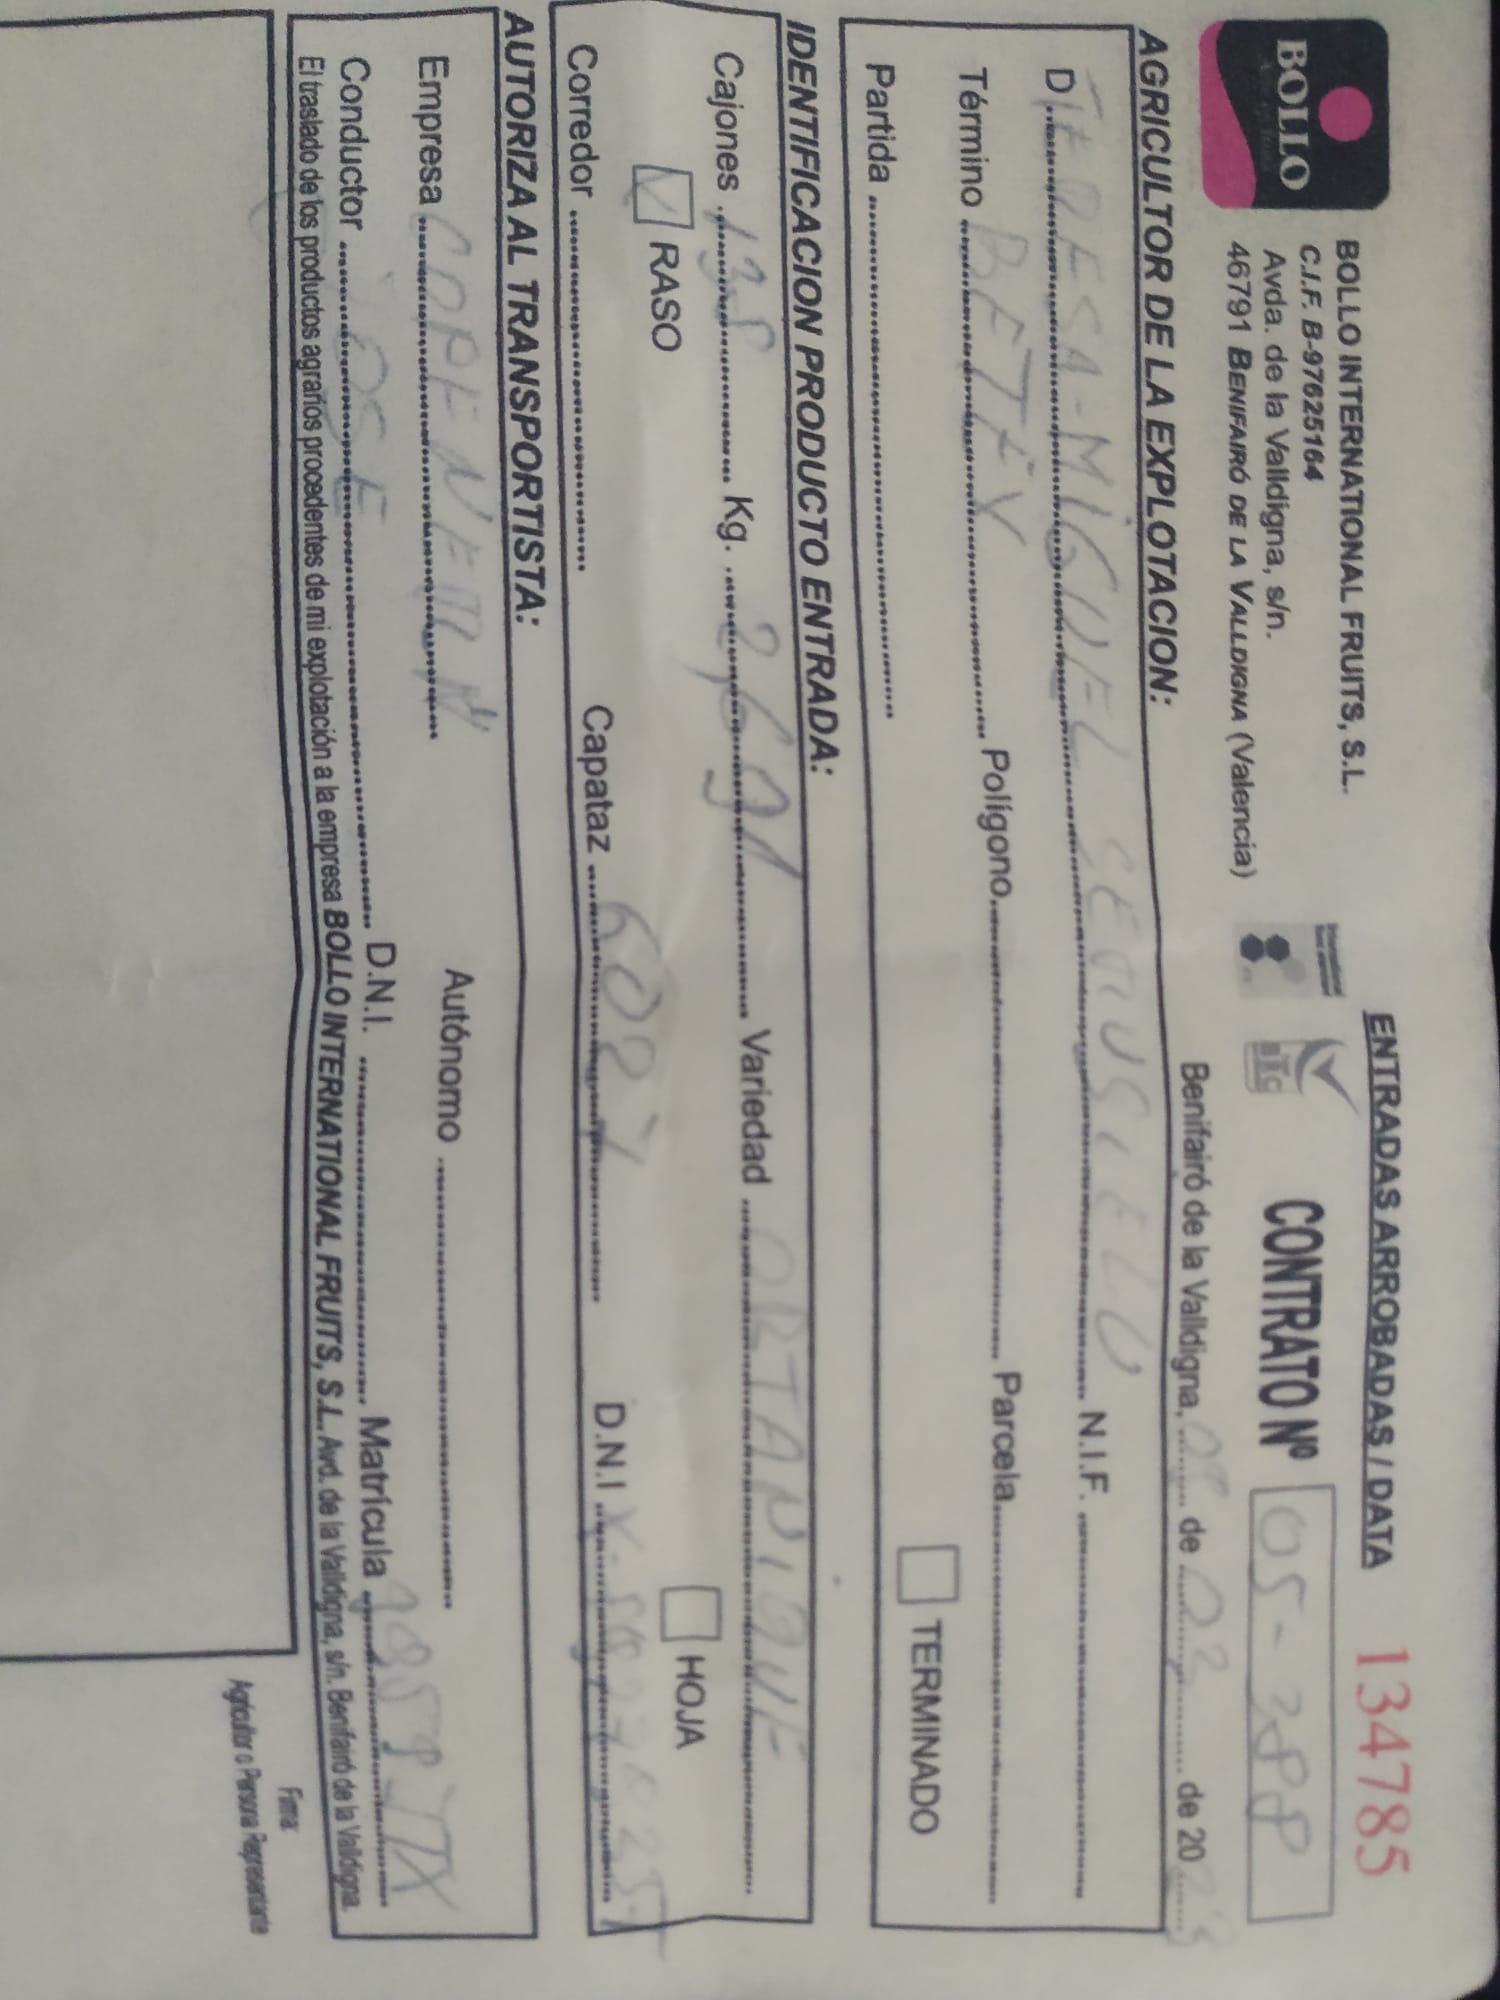 ENTRADAS ARROBADAS / DATA 134785
BOLLO
BOLLO INTERNATIONAL FRUITS, S.L.
C.I.F. B-97625164
Avda. de la Valldigna, s/n.
46791 BENIFAIRÓ DE LA VALLDIGNA (Valencia)
CONTRATO Nº 05-388
Benifairó de la Valldigna, de 03 de 20 23
AGRICULTOR DE LA EXPLOTACION:
D TERESA-MIGUEL N.I.F.
Término BETEX Polígono Parcela
TERMINADO
Partida
IDENTIFICACION PRODUCTO ENTRADA:
Cajones 138 Kg. 2,691 Variedad ORTANIQUE
RASO HOJA
Corredor Capataz 6027 D.N.I
AUTORIZA AL TRANSPORTISTA:
Empresa Autónomo
Conductor JOSE D.N.I. Matrícula
El traslado de los productos agrarios procedentes de mi explotación a la empresa BOLLO INTERNATIONAL FRUITS, S.L. Avd. de la Valldigna, s/n. Benifairó de la Valldigna.
Firma:
Agricultor o Persona Representante